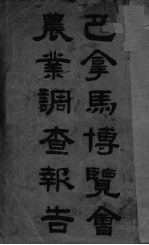 巴拿馬博覽會
農業調查報告